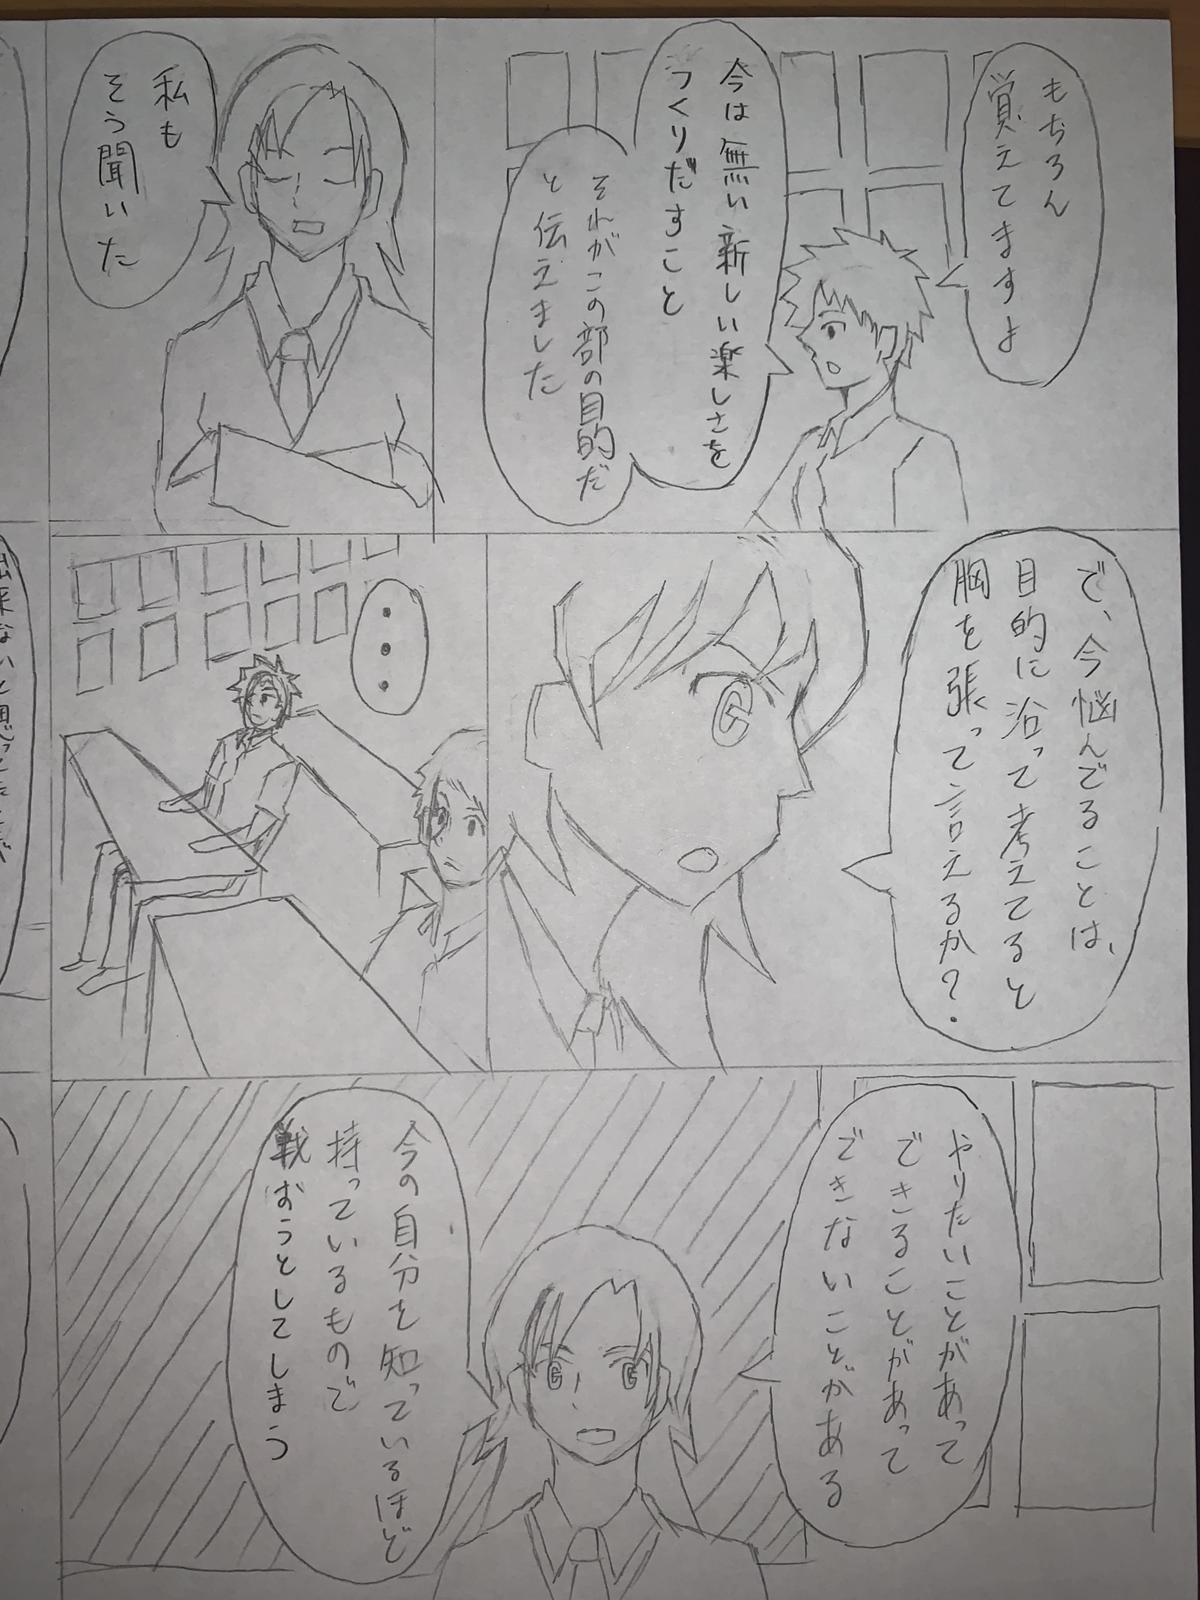 もちろん
覚えてますよ
今は無い新しい楽しさを
つくりだすこと
それがこの部の目的だ
と伝えました
私も
そう聞いた
で、今悩んでることは、
目的に沿って考えてると
胸を張って言えるか?
・・・
やりたいことがあって
できることがあって
できないことがある
今の自分を知っているほど
持っているもので
戦おうとしてしまう
出来ないと思ってたことが